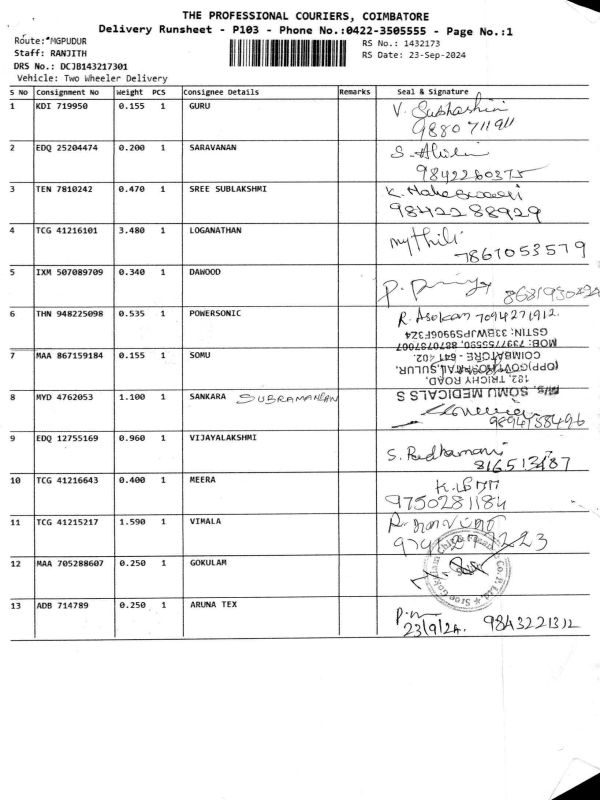 THE PROFESSIONAL COURIERS, COIMBATORE
Delivery Runsheet - P103 - Phone No.:0422-3505555 - Page No.:1
Route: MGPUDUR
RS No.: 1432173
Staff: RANJITH
RS Date: 23-Sep-2024
DRS No.: DCJB143217301
Vehicle: Two Wheeler Delivery
S No Consignment No Weight PCS Consignee Details Remarks Seal & Signature
1 KDI 719950 0.155 1 GURU V. Subhashini
9880711911
2 EDQ 25204474 0.200 1 SARAVANAN
9842260375
3 TEN 7810242 0.470 1 SREE SUBLAKSHMI K. Maheswari
9842288929
4 TCG 41216101 3.480 1 LOGANATHAN mythili
7867053579
5 IXM 507089709 0.340 1 DAWOOD
6 THN 948225098 0.535 1 POWERSONIC R. Asokan 7094271912
GSTIN: 33BWJPS9906F3Z4
7 MAA 867159184 0.155 1 SOMU
COIMBATORE - 641 402.
182, TRICHY ROAD,
M/s. SOMU MEDICALS S
8 MYD 4762053 1.100 1 SANKARA SUBRAMANIAN
9894758496
9 EDQ 12755169 0.960 1 VIJAYALAKSHMI S. Padhamani
10 TCG 41216643 0.400 1 MEERA
9750281184
11 TCG 41215217 1.590 1 VIMALA
12 MAA 705288607 0.250 1 GOKULAM
13 ADB 714789 0.250 1 ARUNA TEX
23/9/24. 9843221312